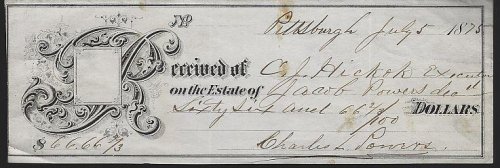 No
Pittsburgh July 5 1875
Received of C. J. Hickok Executor
on the Estate of Jacob Powers decd
Sixty Six and 66 2/3/100 DOLLARS.
$66.66 2/3 Charles L. Powers.